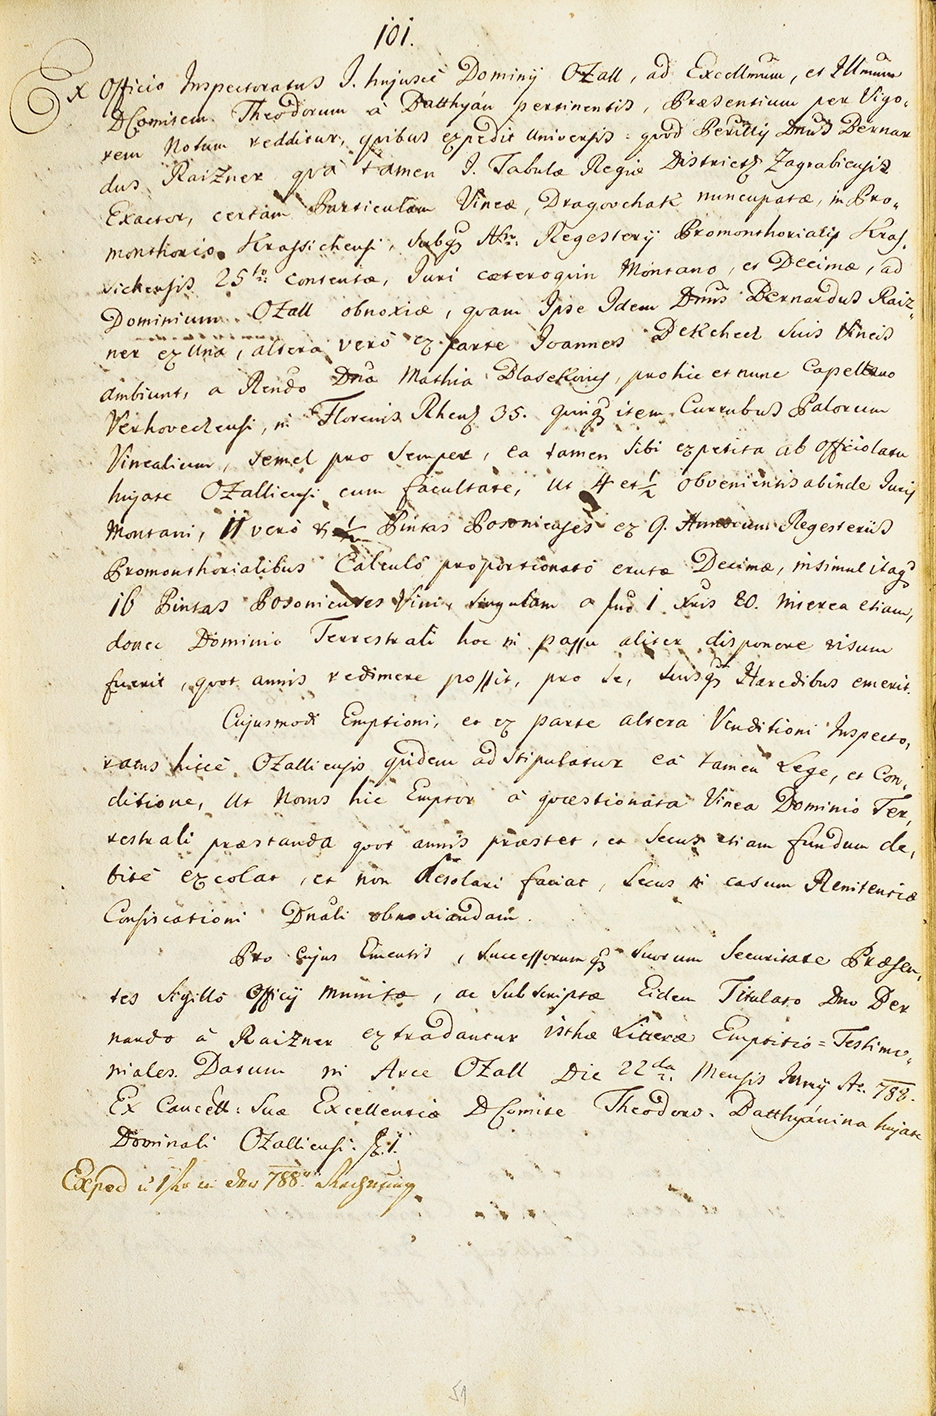 101.
Ex Officio Inspectoratus I. hujusce Dominy Ozall, ad Excellmum, et Illmum
D Comitem Theodorum à Batthyán pertinentis, Præsentium per Vigo-
rem Notum redditur, quibus expedit universis: quod Perillis Dnus Bernar
dus Raizner quà tamen I. Tabulæ Regiæ Districtq Zagrabiensis
Exactor, certam Particulam Vineæ, Dragovchak nuncupatæ, in Pro-
monthorio Krassichensi, Subqs Nro. Regestery Promonthorialis Kras-
sichensis 25to contentæ, Iuri cæteroquin Montano, et Decimæ, ad
Dominium Ozall obnoxiæ, quam Ipse Idem Dnus Bernardus Raiz-
ner ex una, altera verò ex parte Joannes Dekchecz Suis Vineis
ambiunt, a Rendo Dno Mathia Blasekovis, pro hic et nunc Capellano
Verhoveczensi, in Florenis Rhens 35. quinqs item Curribus Palorum
Vinealium, Semel pro Semper, ea tamen Sibi expetita ab Officiolatu
hujate Ozalliensi cum facultate, ut 4 et ½ obvenientis abinde Iuris
Montani, 11 verò & ½ Pintas Posonienses ex 9. Annorum Regesteriis
Promonthorialibus Calculò proportionatò erutæ Decimæ, insimul itaqs
16 Pintas Posonienses Vini, Singulam a Xris 20. misera etiam,
donec Dominio Terrestrali hoc in passu aliter disponere visum
fuerit, quot annis redimere possit, pro Se, Suisqs Hæredibus emerit.
Cujusmodi Emptioni, et ex parte altera Venditioni Inspecto-
ratus hicce Ozalliensis quidem adstipulatur eâ tamen Lege, et Con-
ditione, Ut Novus hic Emptor à quæstionata Vinea Dominio Ter-
restrali præstanda quot annis præstet, et Secus etiam fundum de-
bitè excolat, et non desolari faciat, Secus in casum Renitentiæ
Confiscationi Dnali obnoxiandam.
Pro Cujus Ementis, Successorumqs Suorum Securitate Præsen-
tes Sigillò Officy munitæ, ac Subscriptæ Eidem Titulato Dno Ber
nardo à Raizner extradantur isthæ Litteræ Emptitio = Testimo-
niales. Datum in Arce Ozall Die 22da Mensis Juny Ao. 788.
Ex Cancell: Suæ Excellentiæ D Comite Theodoro Batthyánina hujate
Dominali Ozalliensi.
Exped in den 788 Rechnung
51